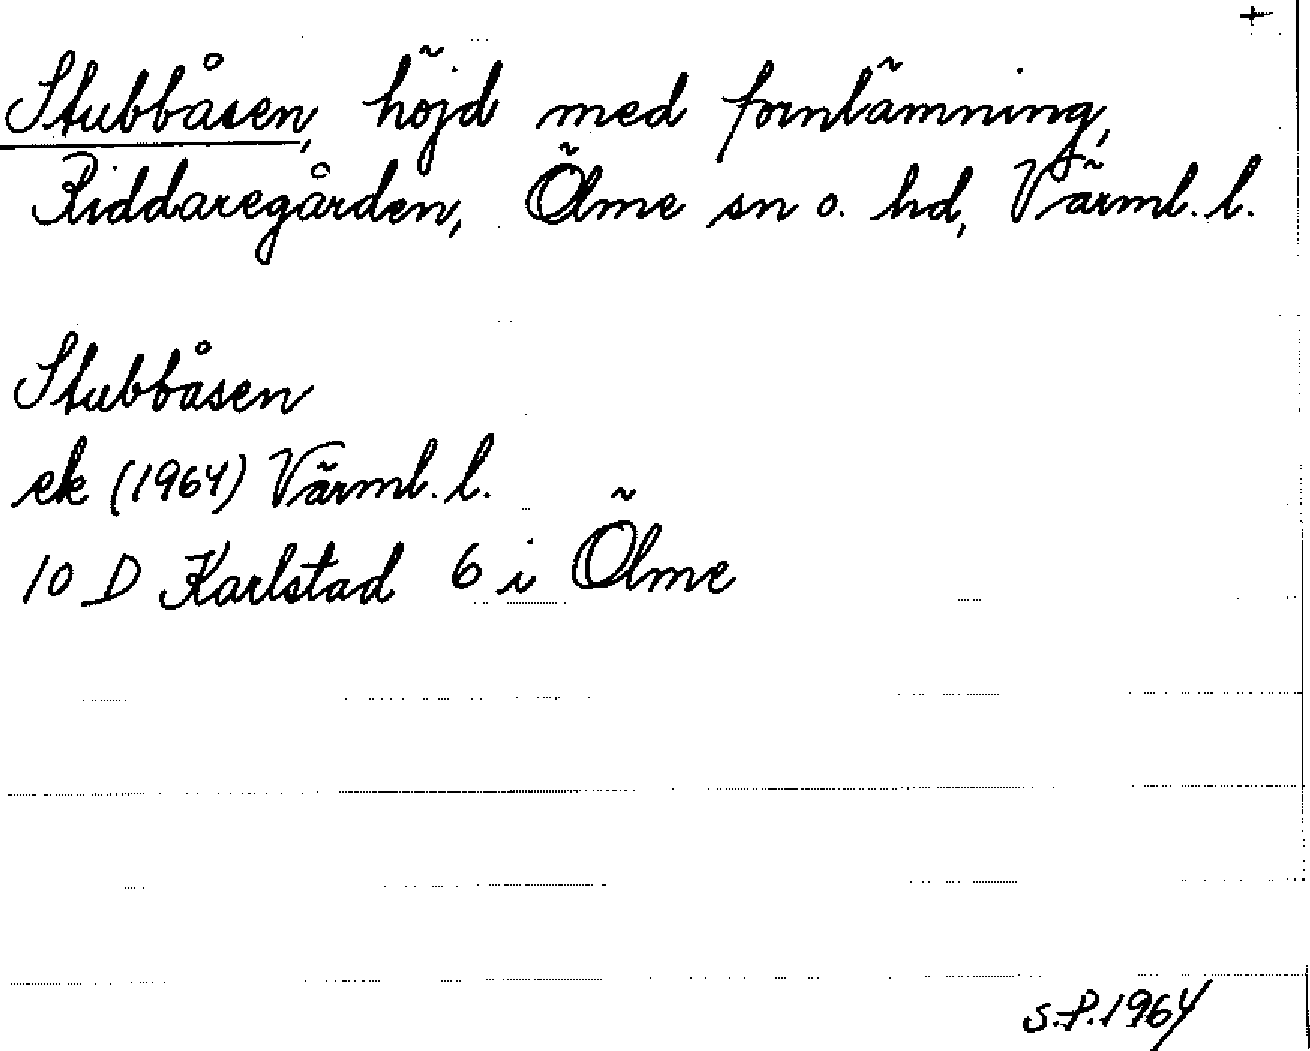 +
Stubbåsen, höjd med fornlämning,
Riddaregården, Ölme sn o. hd, Värml. l.
Stubbåsen
ek (1964) Värml. l.
10 D Karlstad 6 i Ölme
S.P. 1964